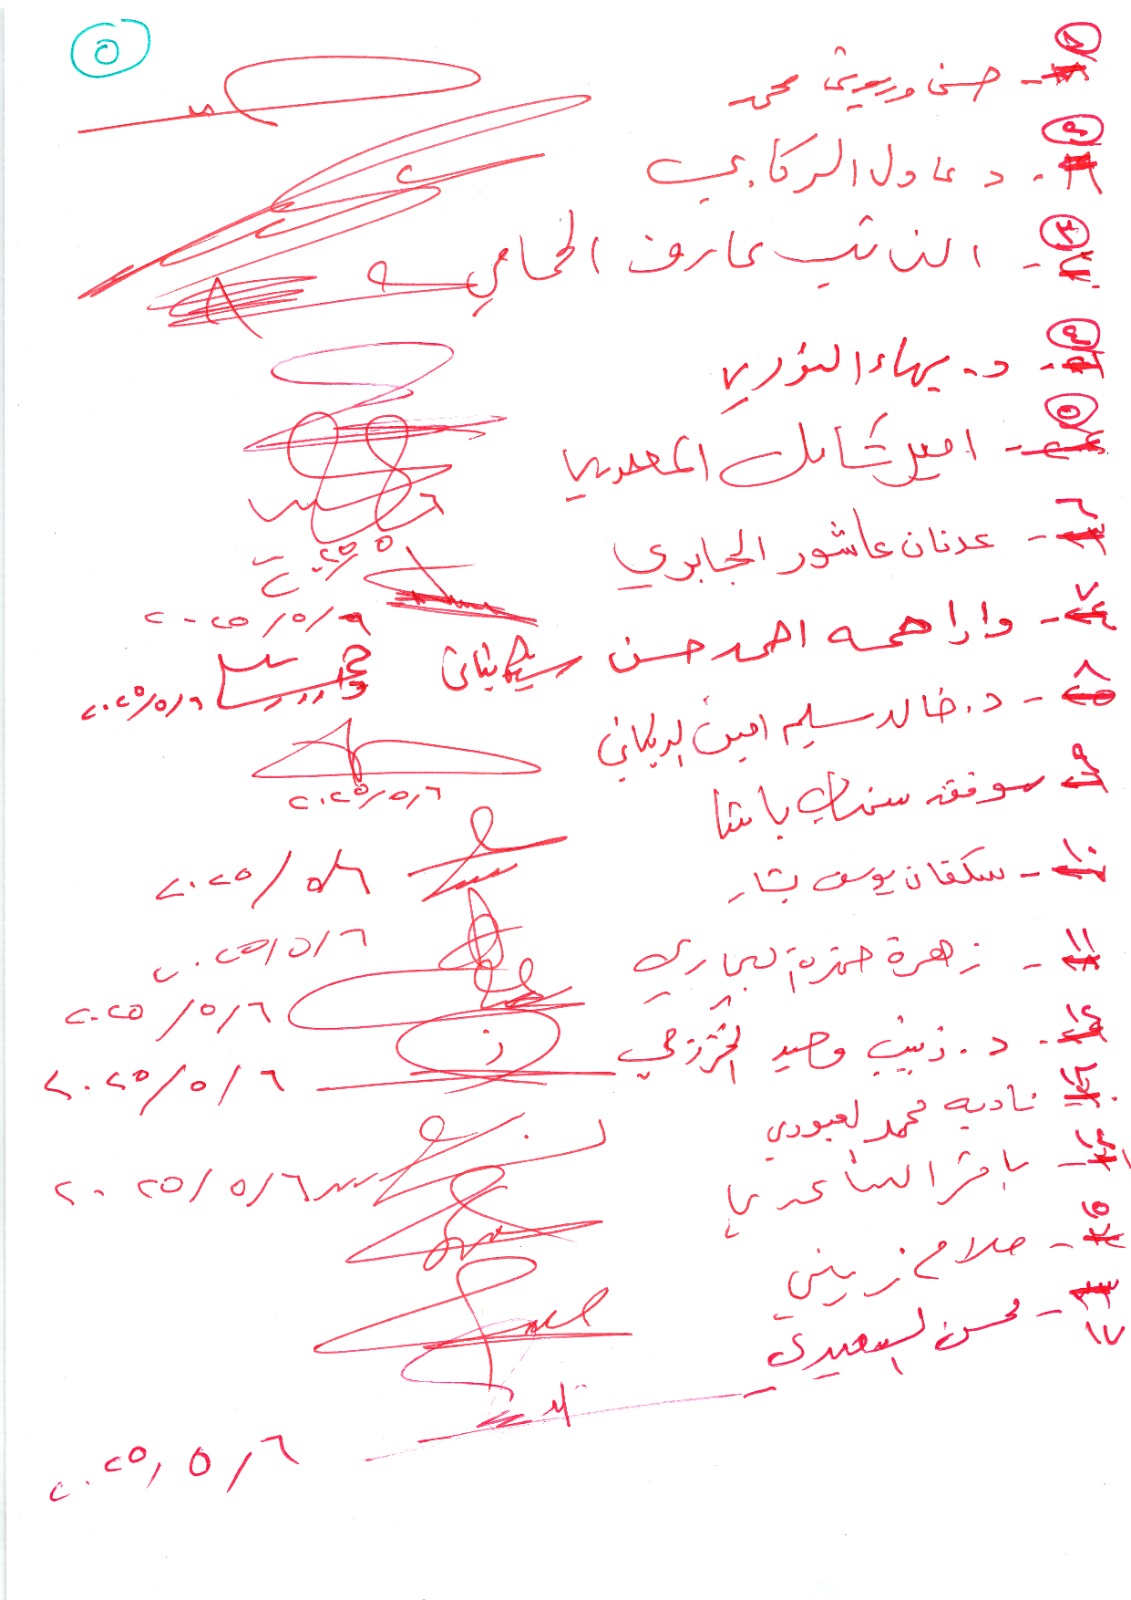 ٥
١- حسن وريوش محمد
٢- د. عادل الركابي
٣- النائب عارف الحمامي
٤- د. بهاء النوري
٥- امير المعموري
٦- عدنان عاشور الجابري
٢٠٢٥/٥/٦
٧- احمد حسن
٢٠٢٥/٥/٦
٨- د. خالد سليم امين
٢٠٢٥/٥/٦
٩- باشا
٢٠٢٥/٥/٦
١٠- يوسف بشار
٢٠٢٥/٥/٦
١١- زهرة حمزة البجاري
٢٠٢٥/٥/٦
١٢- د. زينب وحيد الخزرجي
٢٠٢٥/٥/٦
١٣- نادية محمد العبودي
٢٠٢٥/٥/٦
١٤- باقر الساعدي
١٥- صلاح زيني
١٦- السعيدي
٢٠٢٥/٥/٦